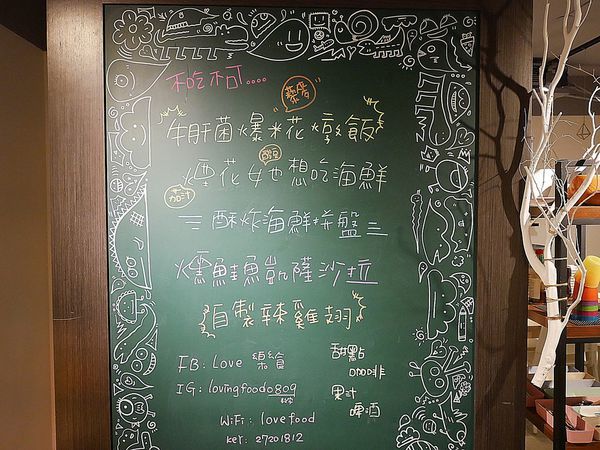 不吃不可....
牛肝菌爆米花燉飯
煙花女也想吃海鮮
酥炸海鮮拼盤
燻鮭魚凱薩沙拉
自製辣雞翅
FB: Love
IG: lovingfood0809
WiFi: lovefood
key: 27201812
甜點
咖啡
果汁
啤酒